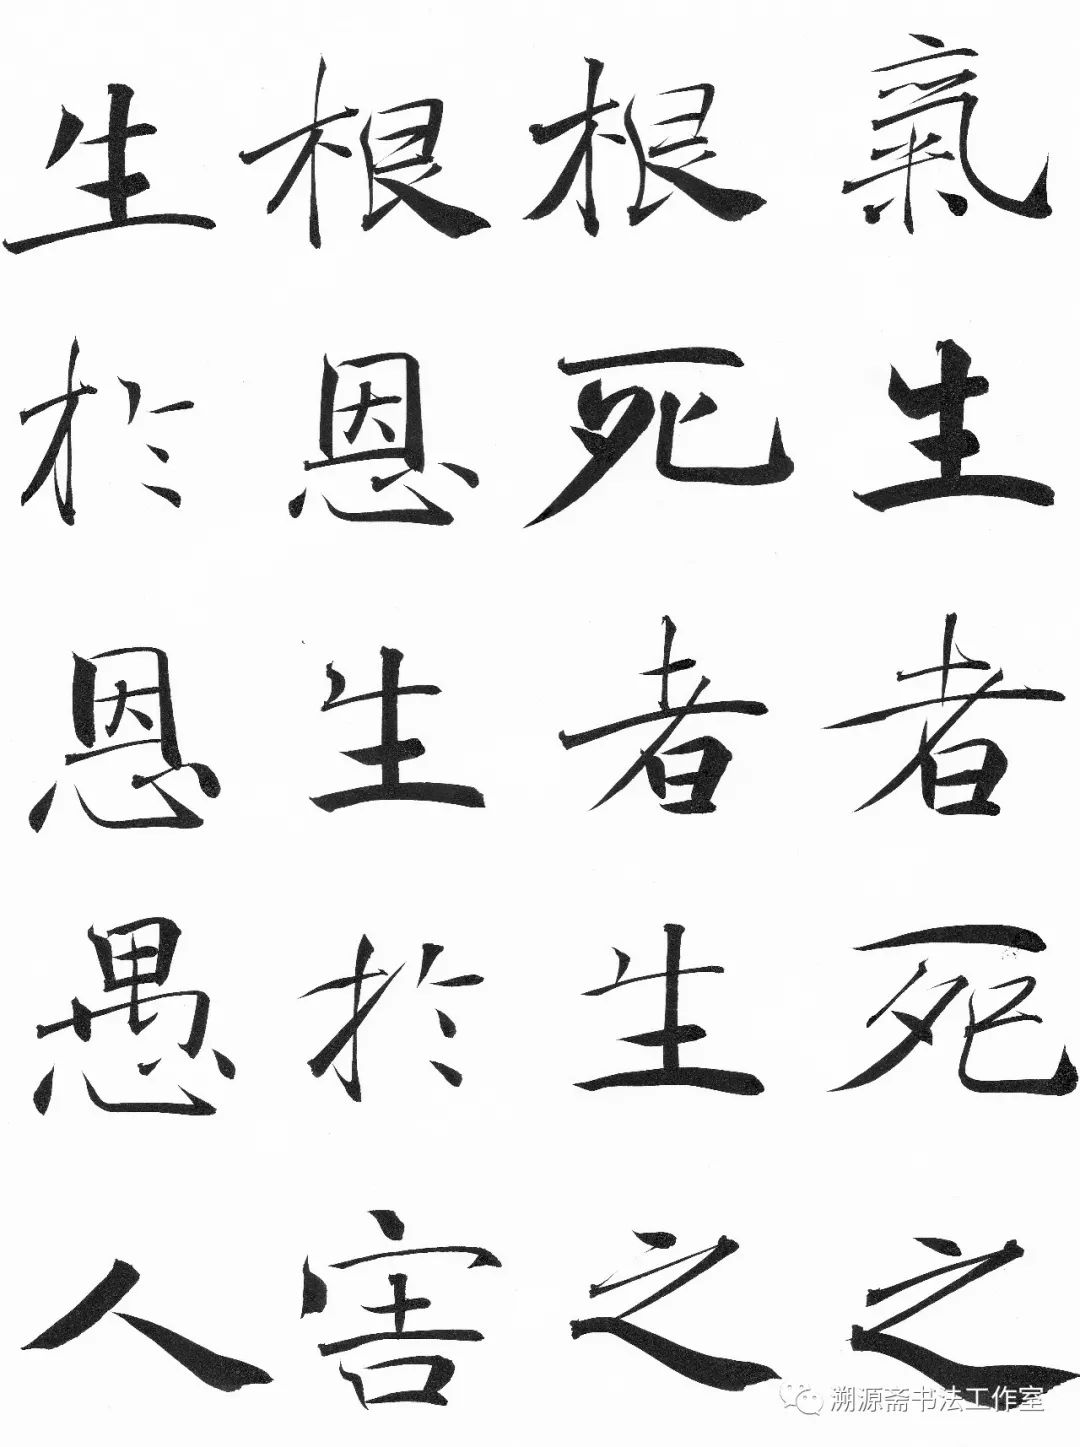 氣生者死之
根死者生之
根恩生於害
生於恩愚人
溯源斋书法工作室